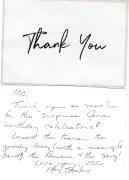 Thank You
VCB,
Thank you so much
for the surprise Gran
birthday celebration!
Loved the tiara, the
goody bag (with a
candy, the flowers & the song!
Love you, VCB